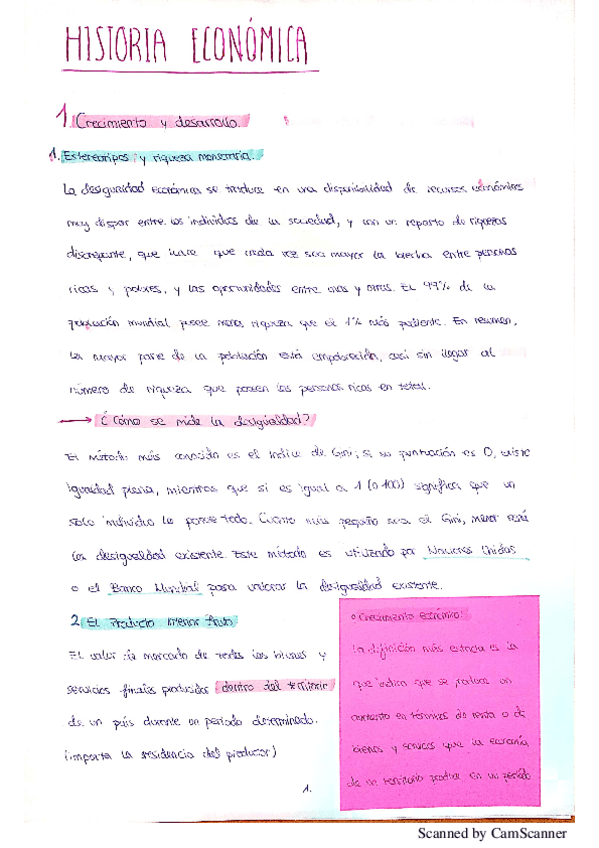 HISTORIA ECONÓMICA
1. Crecimiento y desarrollo.
1. Estereotipos y riqueza monetaria.
La desigualdad económica se traduce en una disponibilidad de recursos económicos
muy dispar entre los individuos de la sociedad, y con un reparto de riquezas
discrepante, que hace que cada vez sea mayor la brecha entre personas
ricas y pobres, y las oportunidades entre unas y otras. El 99% de la
población mundial posee menos riqueza que el 1% más pudiente. En resumen,
la mayor parte de la población está empobrecida, aun sin llegar al
número de riqueza que poseen las personas ricas en total.
→ ¿Cómo se mide la desigualdad?
El método más conocido es el índice de Gini; si su puntuación es 0, existe
igualdad plena, mientras que si es igual a 1 (o 100) significa que un
solo individuo lo posee todo. Cuanto más pequeño sea el Gini, menor será
la desigualdad existente. Este método es utilizado por Naciones Unidas
o el Banco Mundial para valorar la desigualdad existente.
2. El Producto Interior Bruto
El valor de mercado de todos los bienes y
servicios finales producidos dentro del territorio
de un país durante un período determinado.
(importa la residencia del productor)
Crecimiento económico:
La definición más estricta es la
que indica que se produce un
aumento en términos de renta o de
bienes y servicios que la economía
de un territorio produce en un período
1.
Scanned by CamScanner